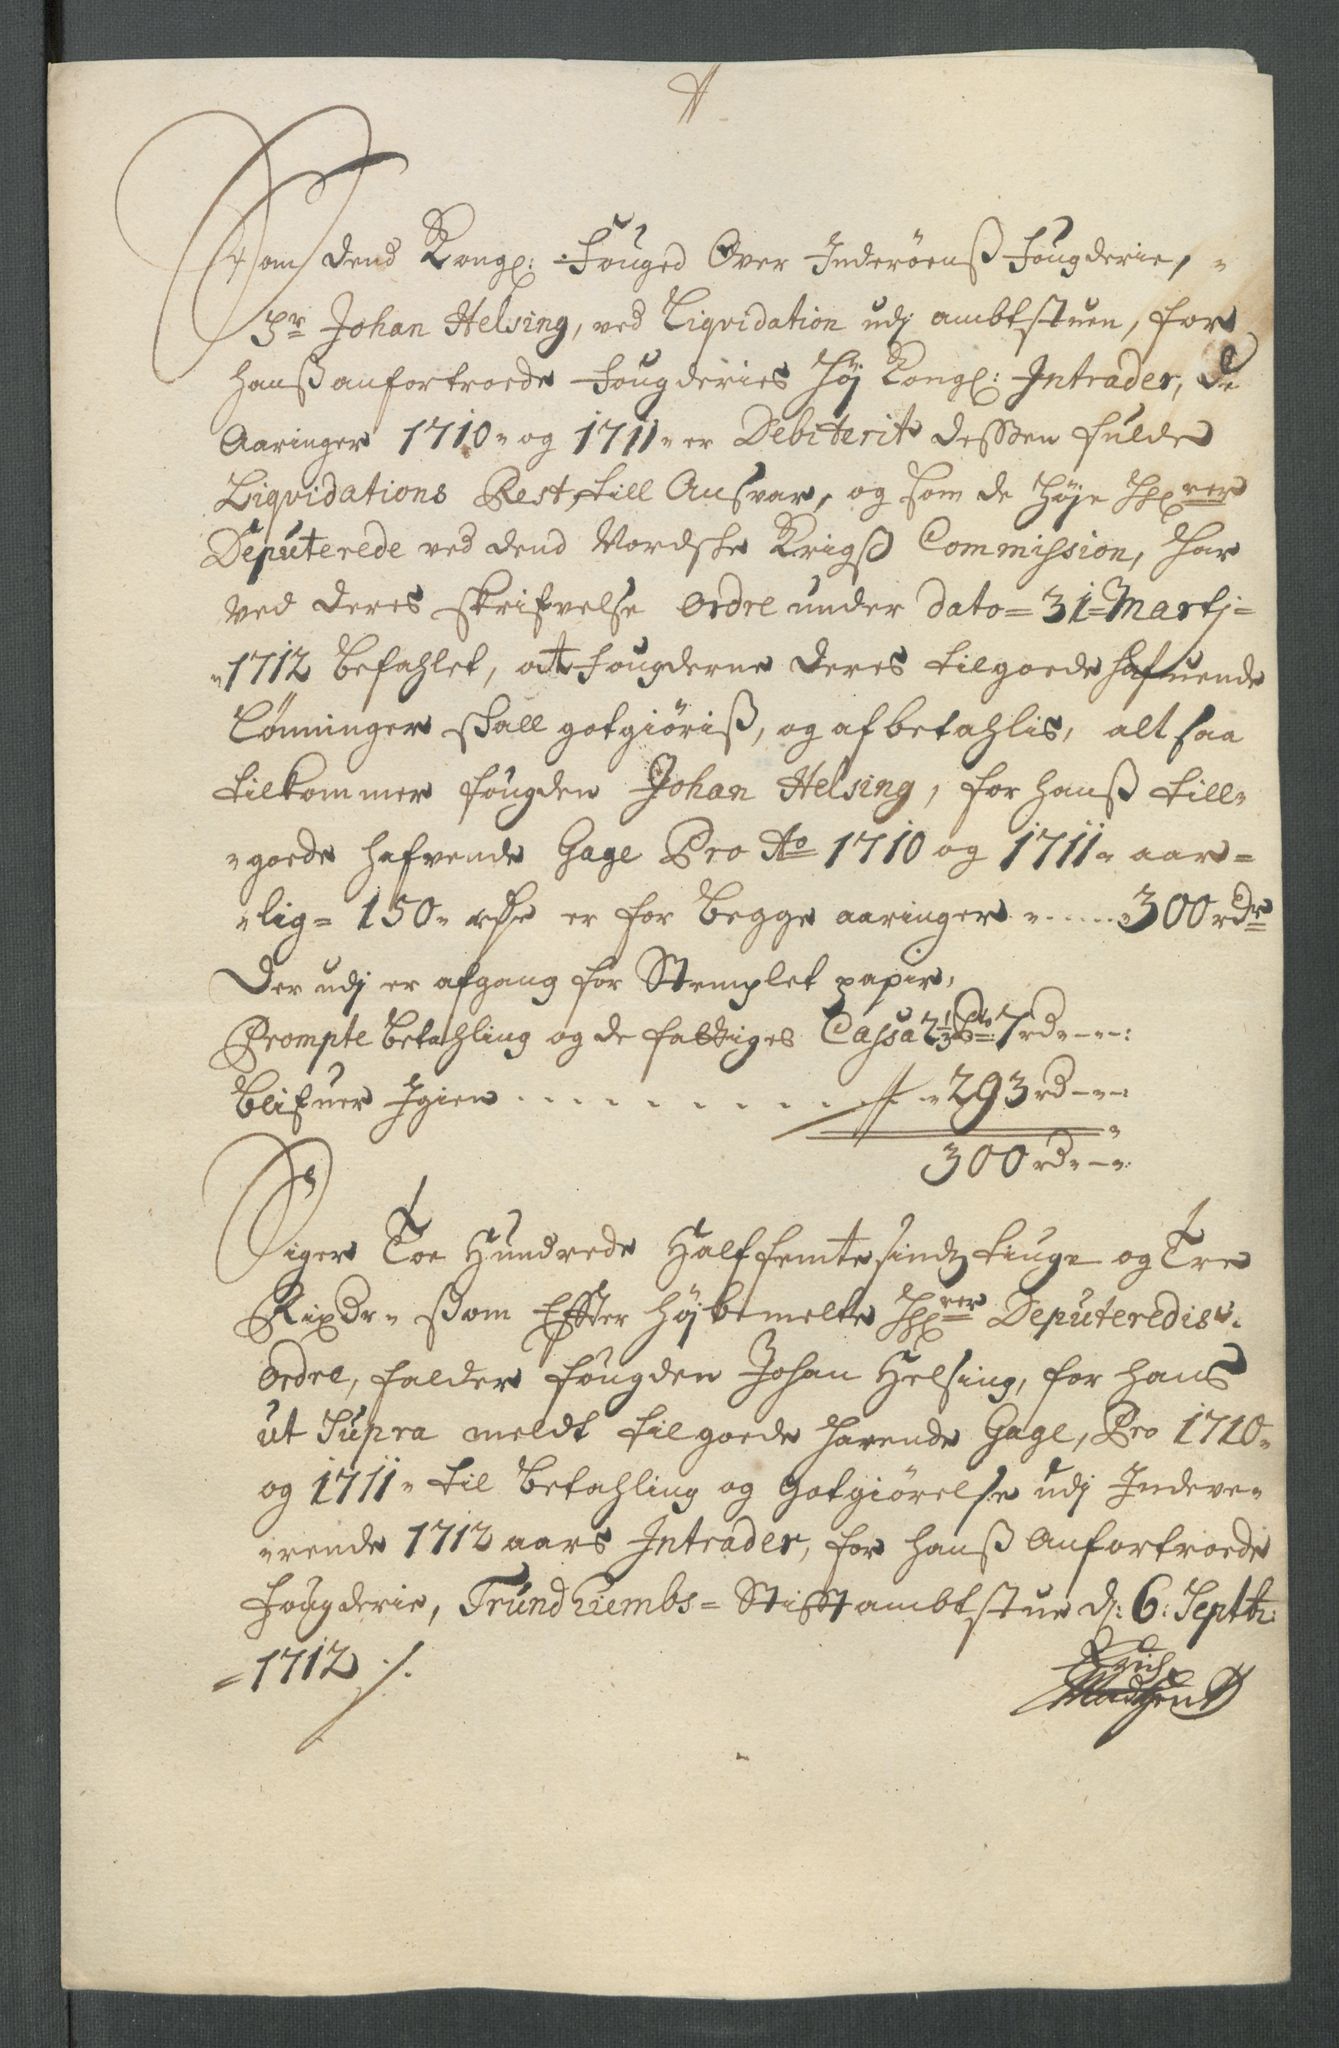 Som dend Kongl: Fouged Over Inderöens Fougderie,
Sr Johan Helsing, ved Liqvidation udj ambtstuen, for
hanß anfortroede Fougderies Höj Kongl: Intrader, de
Aaringer 1710 og 1711 er Debiterit dessen fulde
Liqvidations Rest, till Ansvar, og som de Höje Hrrer
Deputerede ved dend Nordske Krigß Commission, har
ved deres skrifvelse ordre under dato 31 Martj
1712 befahlet, at Fougderne deres tilgoede hafuende
Lönninger skall gotgiöriß, og afbetahlis, alt saa
tilkommer fougden Johan Helsing, for hanß till
goede hafvende Gage Pro Ao 1710 og 1711 aar
lig 150 rdr er for begge aaringer ..... 300 rdr
Der udj er afgang for Stemplet papir,
Prompte betahling og de fattiges Cassa 2 1/3 Pto: 7 rd - - :
Blifuer Igien . . . . . . . . . . 293 rd - - :
300 rd - - :
Siger Toe Hundrede Halffemtesindztiuge og Tre
Rixdr som Effter höjbemelte Hrrer Deputeredis
ordre, falder fougden Johan Helsing, for hans
ut Supra meldt tilgoede havende Gage, Pro 1710
og 1711 til betahling og gotgiörelse udj Indeve
rende 1712 aars Intrader, for hanß anfortroede
Fougderie, Trundhiembs Stifftambtstue d: 6: Septbr:
1712 ./.
Erich
Madtzen